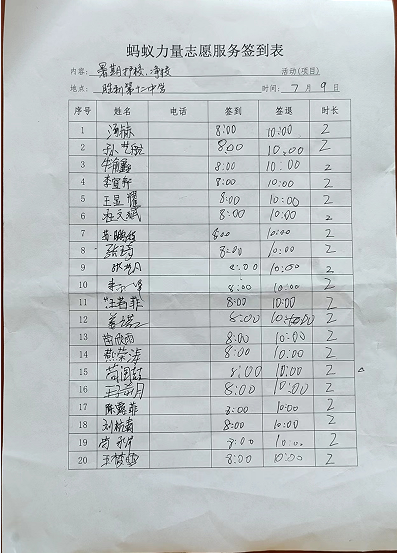 蚂蚁力量志愿服务签到表
内容：暑期护校、净校 活动(项目)
地点：胜利第十二中学 时间：7月9日
序号 姓名 电话 签到 签退 时长
1 8:00 10:00 2
2 8:00 10:00 2
3 8:00 10:00 2
4 8:00 10:00 2
5 王显耀 8:00 10:00 2
6 8:00 10:00 2
7 8:00 10:00 2
8 张琦 8:00 10:00 2
9 8:00 10:00 2
10 8:00 10:00 2
11 王若菲 8:00 10:00 2
12 姜诺 8:00 10:00 2
13 苗欣雨 8:00 10:00 2
14 8:00 10:00 2
15 8:00 10:00 2
16 8:00 10:00 2
17 陈露菲 8:00 10:00 2
18 8:00 10:00 2
19 8:00 10:00 2
20 王梦雪 8:00 10:00 2